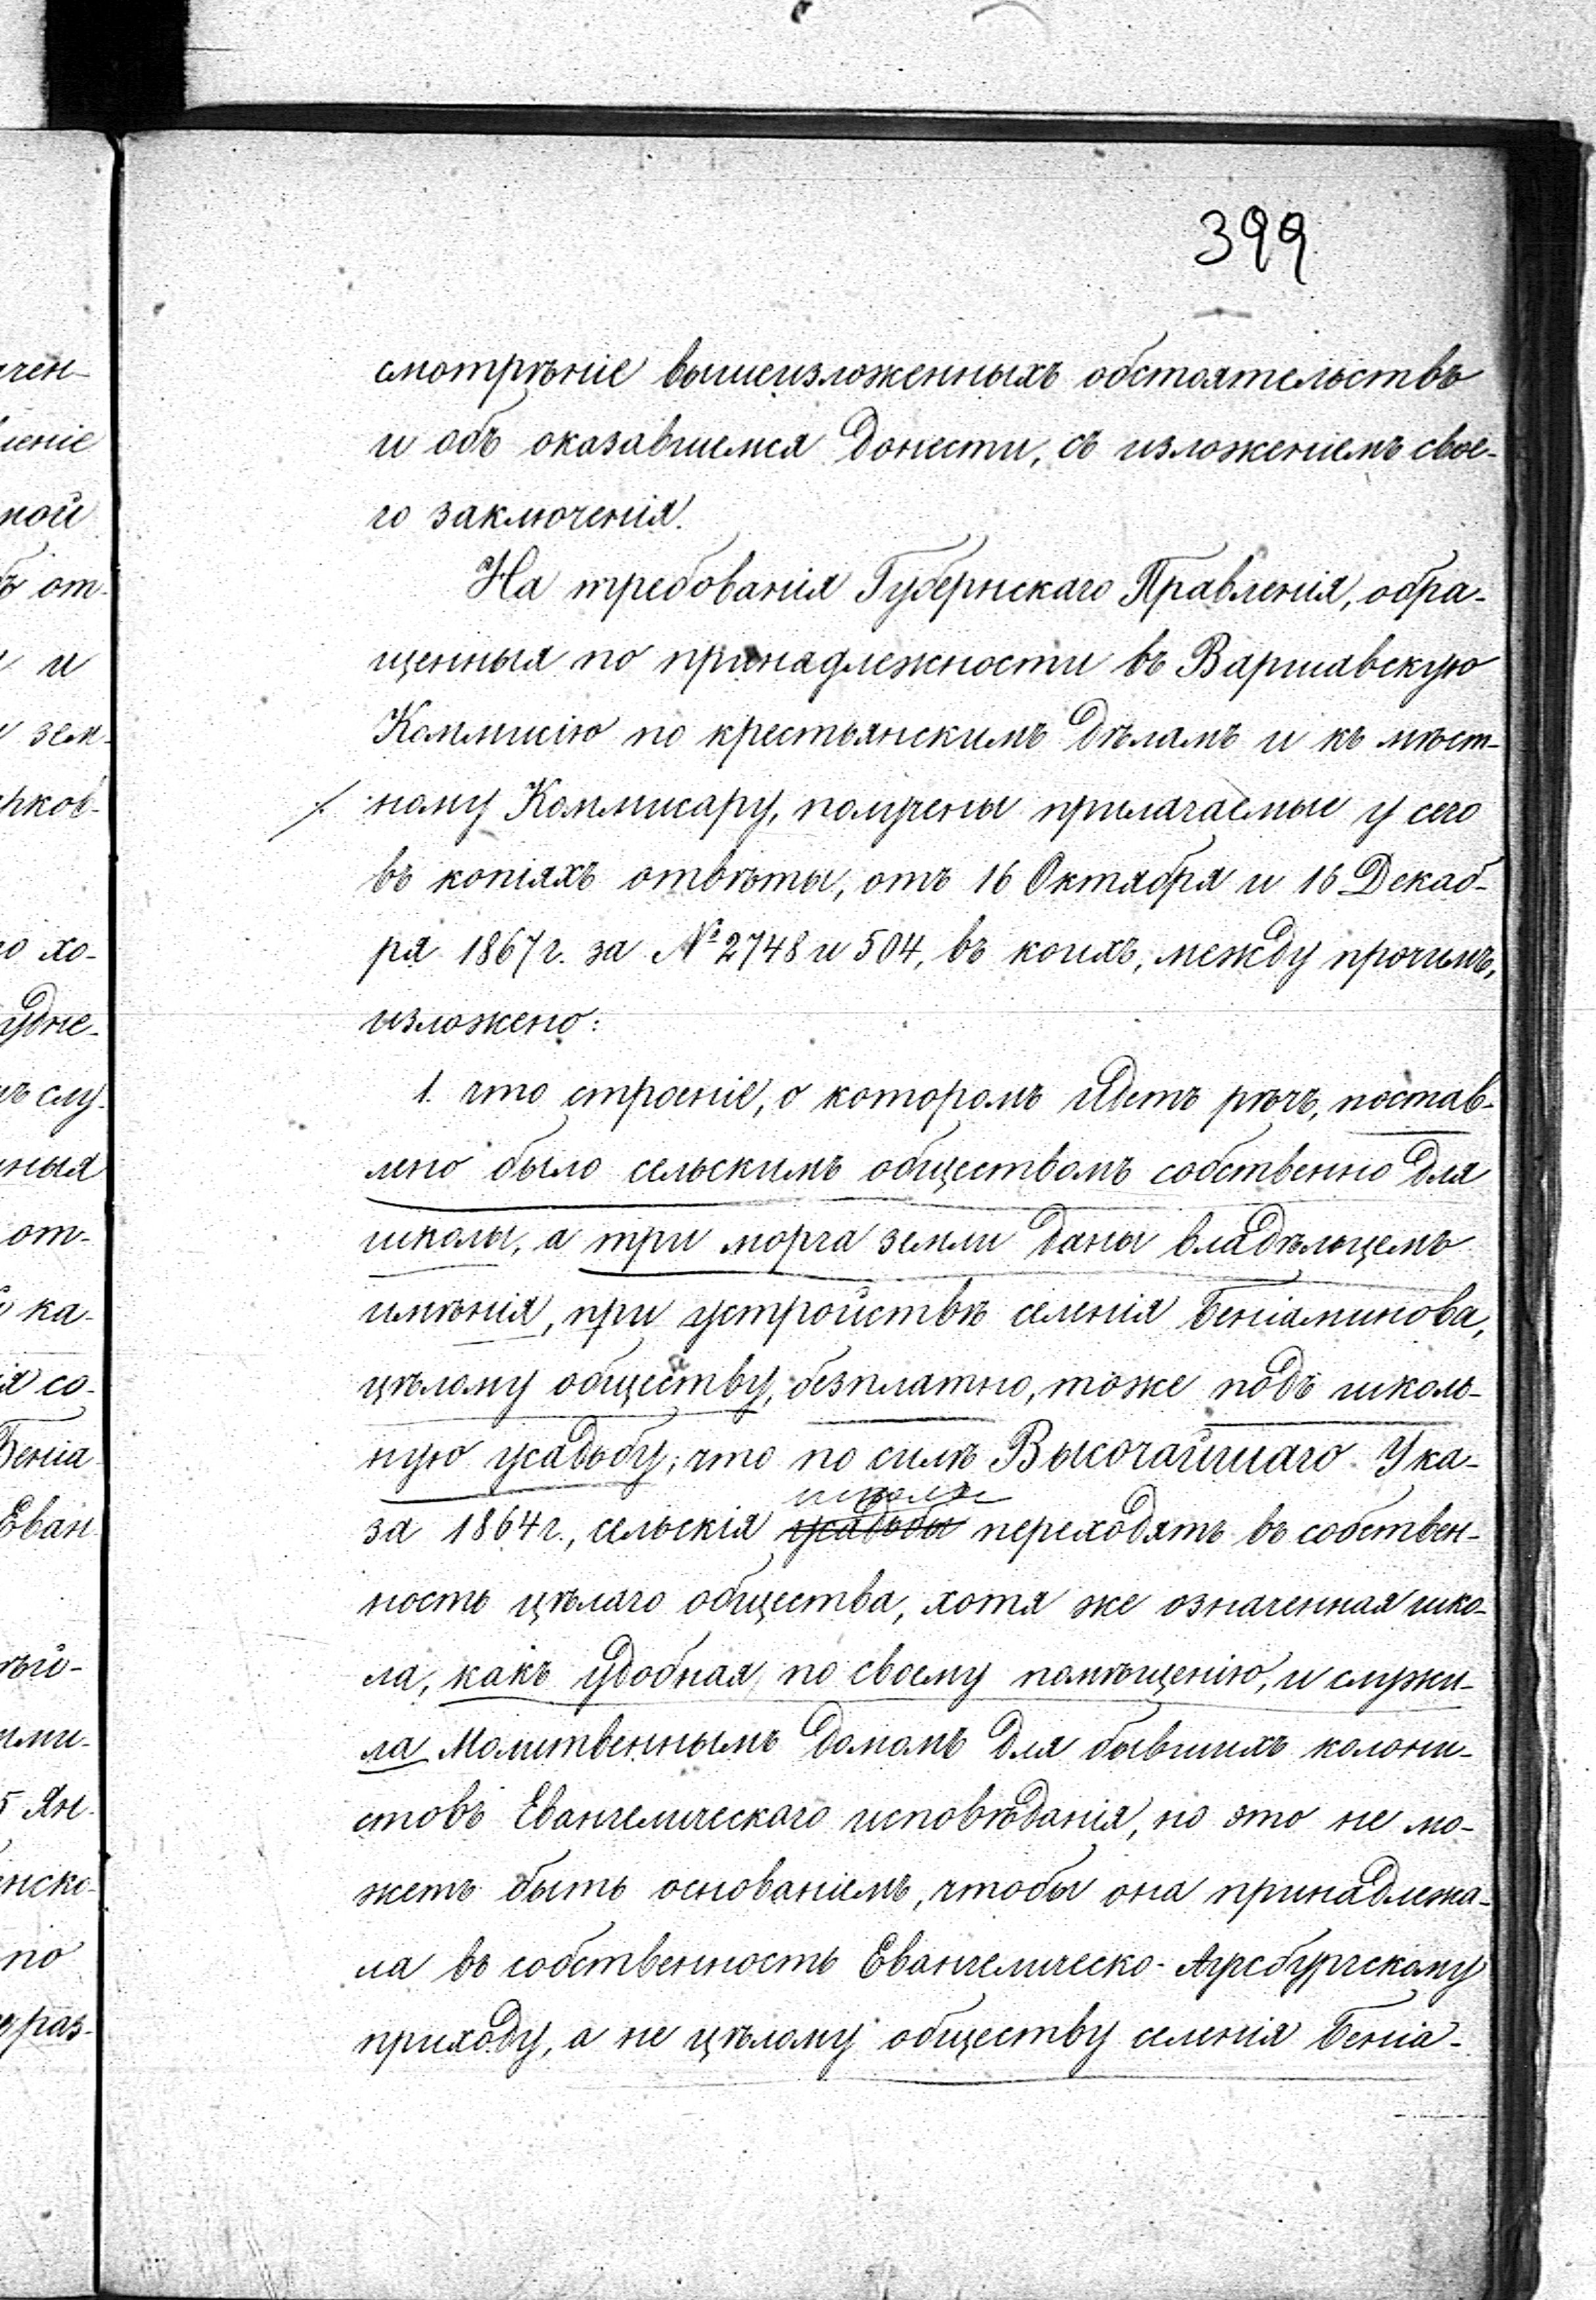 399
смотрѣніе вышеизложенныхъ обстоятельствъ
и объ оказавшемся донести, съ изложеніемъ свое-
го заключенія.
На требованія Губернскаго Правленія, обра-
щенныя по принадлежности въ Варшавскую
Коммисію по крестьянскимъ дѣламъ и къ мѣст-
ному Коммисару, получены прилагаемые у сего
въ копіяхъ отвѣты, отъ 16 Октября и 16 Декаб-
ря 1867 г. за № 2748 и 504, въ коихъ, между прочимъ,
изложено:
1. что строеніе, о которомъ идетъ рѣчь, постав-
лено было сельскимъ обществомъ собственно для
школы, а три морга земли даны владѣльцемъ
имѣнія, при устройствѣ селенія Беніаминова,
цѣлому обществу, безплатно, тоже подъ школь-
ную усадьбу; что по силѣ Высочайшаго Ука-
школы
за 1864 г., сельскія усадьбы переходятъ въ собствен-
ность цѣлаго общества, хотя же означенная шко-
ла, какъ удобная, по своему помѣщенію, и служи-
ла Молитвеннымъ домомъ для бывшихъ колони-
стовъ Евангелическаго исповѣданія, но это не мо-
жетъ быть основаніемъ, чтобы она принадлежа-
ла въ собственность Евангелическо-Аугсбургскому
приходу, а не цѣлому обществу селенія Беніа-